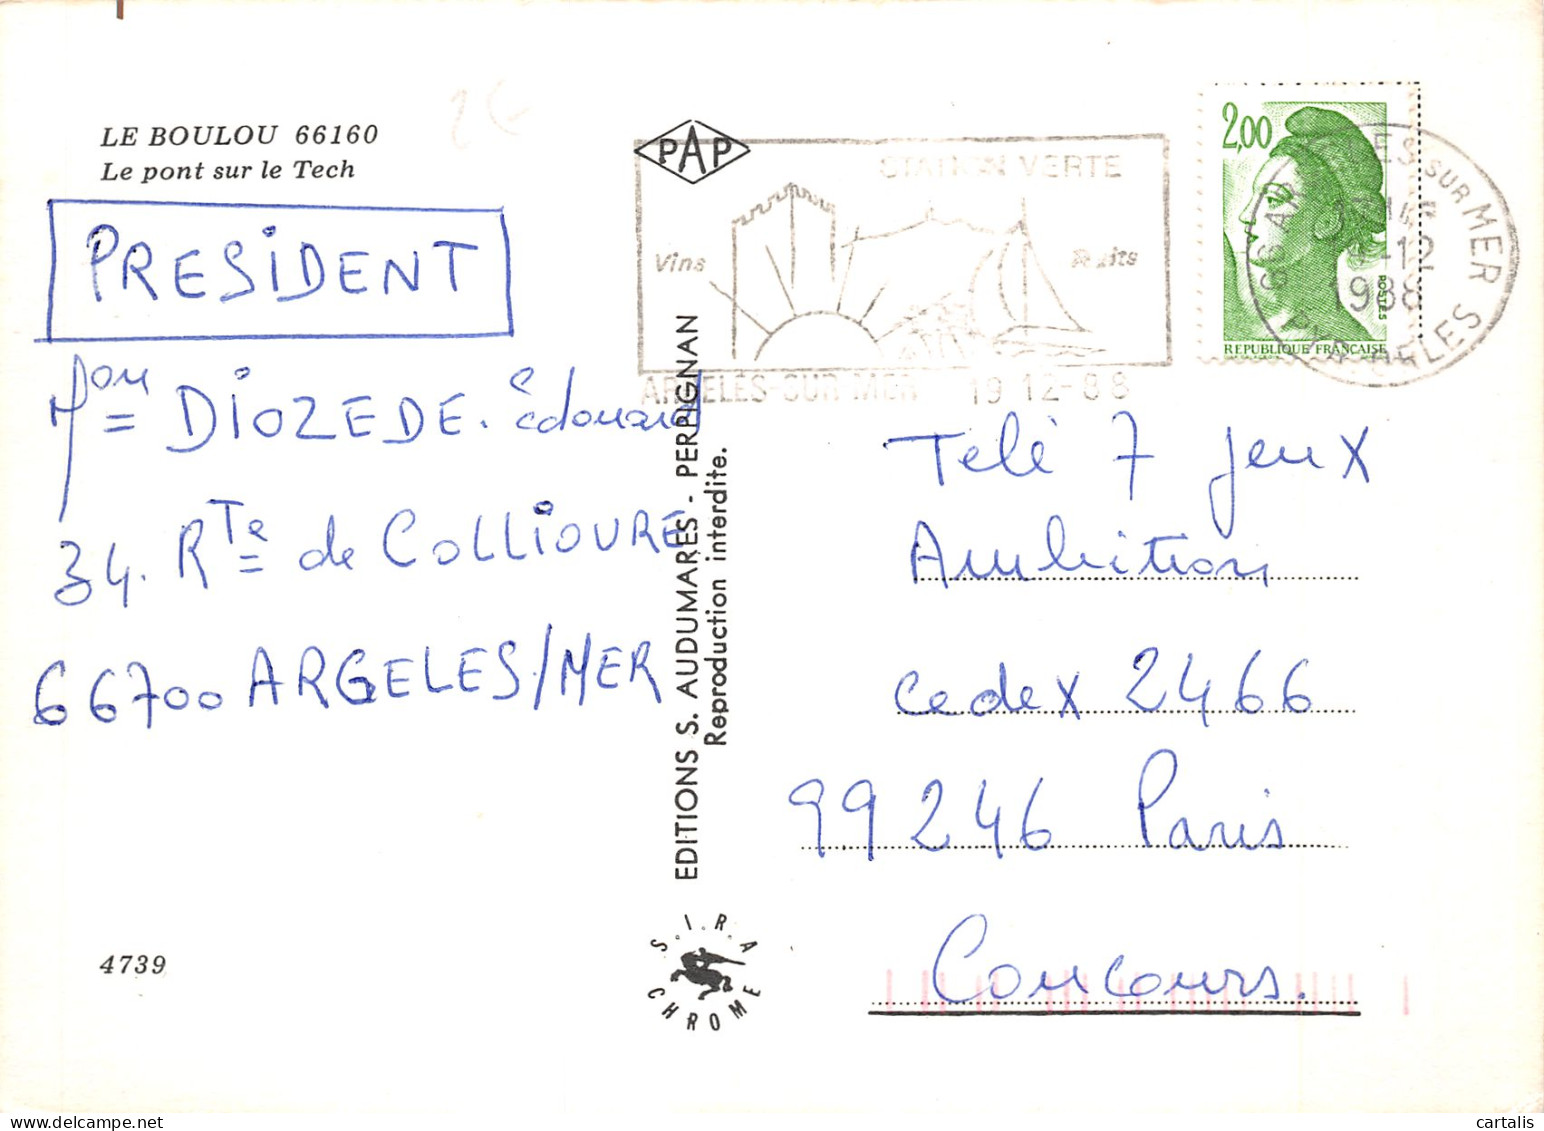 LE BOULOU 66160
Le pont sur le Tech
PRESIDENT
Mon = DIOZEDE. Edouard
34. Rte = de COLLIOURE
66700 ARGELES/MER
4739
PAP
STATION VERTE
Vins
Fruits
ARGELES-SUR-MER 19 12-88
2,00
POSTES
REPUBLIQUE FRANÇAISE
66 ARGELES SUR MER
-12
1988
EDITIONS S. AUDUMARES - PERPIGNAN
Reproduction interdite.
S.I.R.A
CHROME
Télé 7 jeux
Ambition
cedex 2466
99246 Paris
Concours.
cartalis